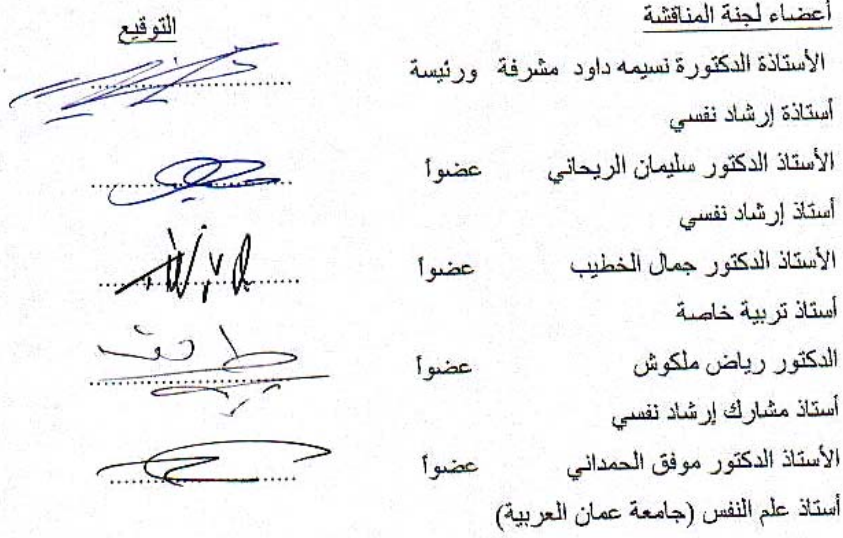 أعضاء لجنة المناقشة التوقيع
الأستاذة الدكتورة نسيمه داود مشرفة ورئيسة
أستاذة إرشاد نفسي
الأستاذ الدكتور سليمان الريحاني عضواً
أستاذ إرشاد نفسي
الأستاذ الدكتور جمال الخطيب عضواً
أستاذ تربية خاصة
الدكتور رياض ملكوش عضواً
أستاذ مشارك إرشاد نفسي
الأستاذ الدكتور موفق الحمداني عضواً
أستاذ علم النفس (جامعة عمان العربية)